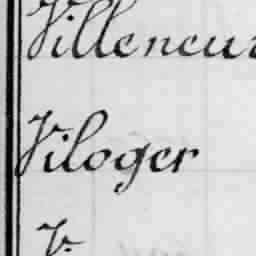 Villeneuv
Viloger
V.